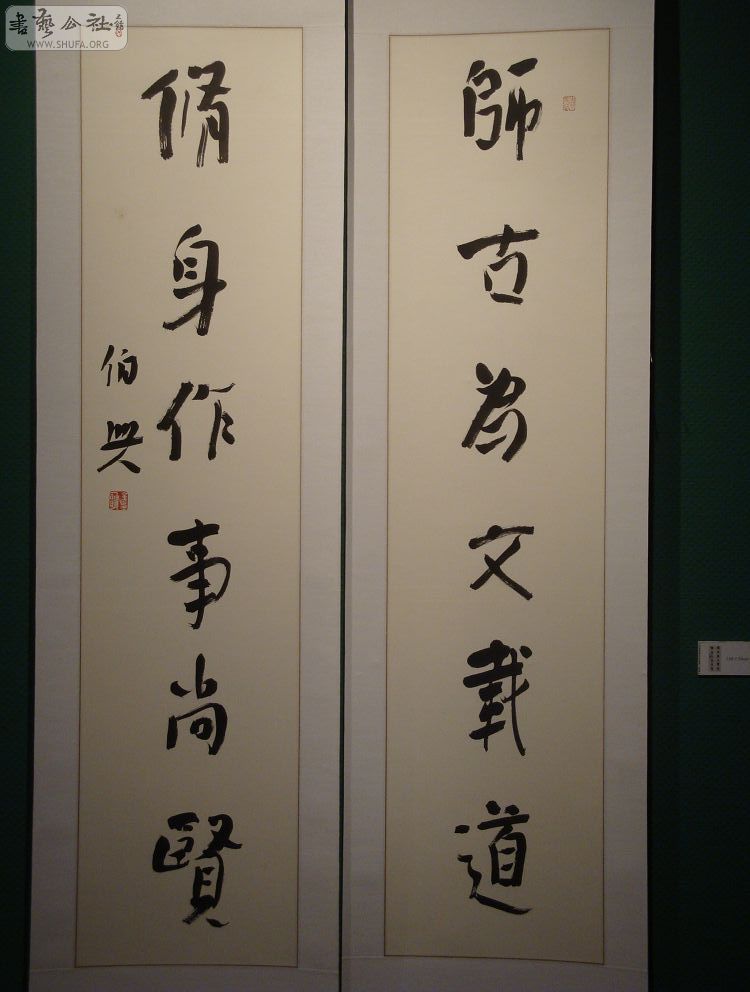 師古為文載道
脩身作事尚賢
伯興
書藝公社
WWW.SHUFA.ORG